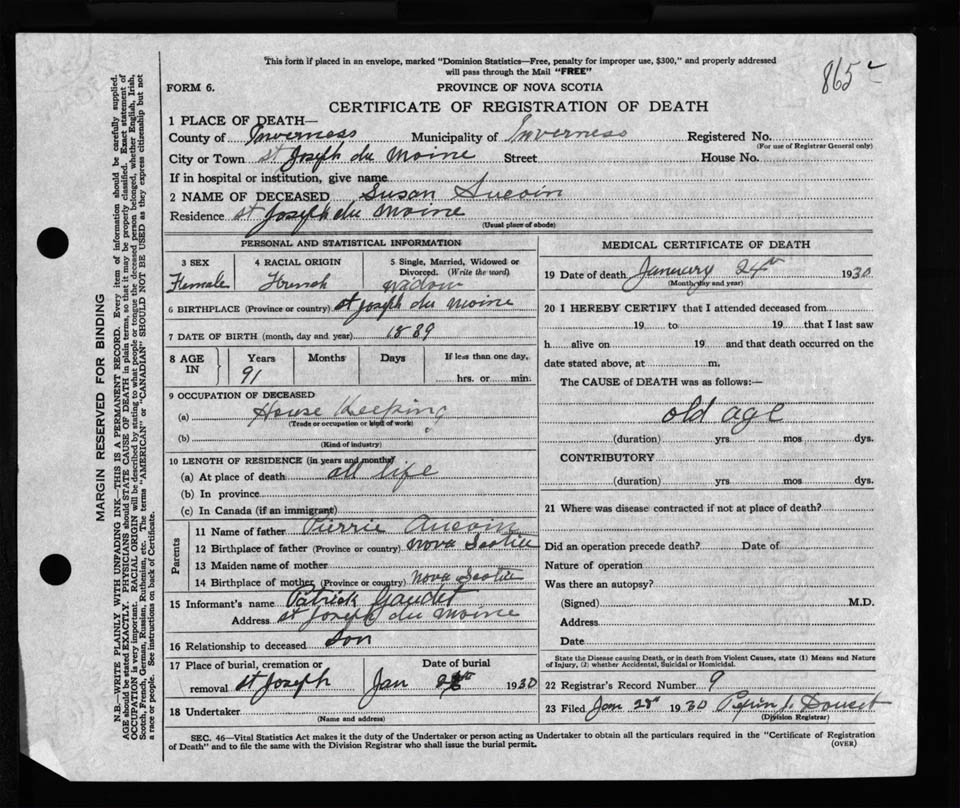 This form if placed in an envelope, marked "Dominion Statistics—Free, penalty for improper use, $300," and properly addressed
will pass through the Mail "FREE"
865
FORM 6. PROVINCE OF NOVA SCOTIA
CERTIFICATE OF REGISTRATION OF DEATH
1 PLACE OF DEATH—
County of Inverness Municipality of Inverness Registered No.
(For use of Registrar General only)
City or Town St Joseph du Moine Street House No.
If in hospital or institution, give name
2 NAME OF DECEASED Susan Aucoin
Residence St Joseph du Moine
(Usual place of abode)
MARGIN RESERVED FOR BINDING
N.B.—WRITE PLAINLY WITH UNFADING INK—THIS IS A PERMANENT RECORD. Every item of information should be carefully supplied.
AGE should be stated EXACTLY. PHYSICIANS should STATE CAUSE OF DEATH in plain terms, so that it may be properly classified. Exact statement of
OCCUPATION is very important. RACIAL ORIGIN will be described by stating to what people or tongue the deceased person belonged, whether English, Irish,
Scotch, French, German, Russian, Ruthenian, etc. The terms "AMERICAN" or "CANADIAN" SHOULD NOT BE USED as they express citizenship but not
a race or people. See instructions on back of Certificate.
PERSONAL AND STATISTICAL INFORMATION
3 SEX 4 RACIAL ORIGIN 5 Single, Married, Widowed or
Divorced. (Write the word)
Female French widow
6 BIRTHPLACE (Province or country) St Joseph du Moine
7 DATE OF BIRTH (month, day and year) 1889
8 AGE IN Years Months Days If less than one day,
91 hrs. or min.
9 OCCUPATION OF DECEASED
(a) House Keeping
(Trade or occupation or kind of work)
(b)
(Kind of industry)
10 LENGTH OF RESIDENCE (in years and months)
(a) At place of death all life
(b) In province
(c) In Canada (if an immigrant)
Parents
11 Name of father Pierrie Aucoin
12 Birthplace of father (Province or country) Nova Scotia
13 Maiden name of mother
14 Birthplace of mother (Province or country) Nova Scotia
15 Informant's name Patrick Gaudet
Address St Joseph du Moine
16 Relationship to deceased Son
17 Place of burial, cremation or Date of burial
removal St Joseph Jan 1930
18 Undertaker
(Name and address)
MEDICAL CERTIFICATE OF DEATH
19 Date of death January 24th 1930
(Month, day and year)
20 I HEREBY CERTIFY that I attended deceased from
19 to 19 that I last saw
h alive on 19 and that death occurred on the
date stated above, at m.
The CAUSE of DEATH was as follows:—
old age
(duration) yrs mos dys.
CONTRIBUTORY
(duration) yrs mos dys.
21 Where was disease contracted if not at place of death?
Did an operation precede death? Date of
Nature of operation
Was there an autopsy?
(Signed) M.D.
Address
Date
State the Disease causing Death, or in death from Violent Causes, state (1) Means and Nature
of Injury, (2) whether Accidental, Suicidal or Homicidal.
22 Registrar's Record Number 9
23 Filed Jan 28th 1930 J. Doucet
(Division Registrar)
SEC. 46—Vital Statistics Act makes it the duty of the Undertaker or person acting as Undertaker to obtain all the particulars required in the "Certificate of Registration
of Death" and to file the same with the Division Registrar who shall issue the burial permit.
(OVER)